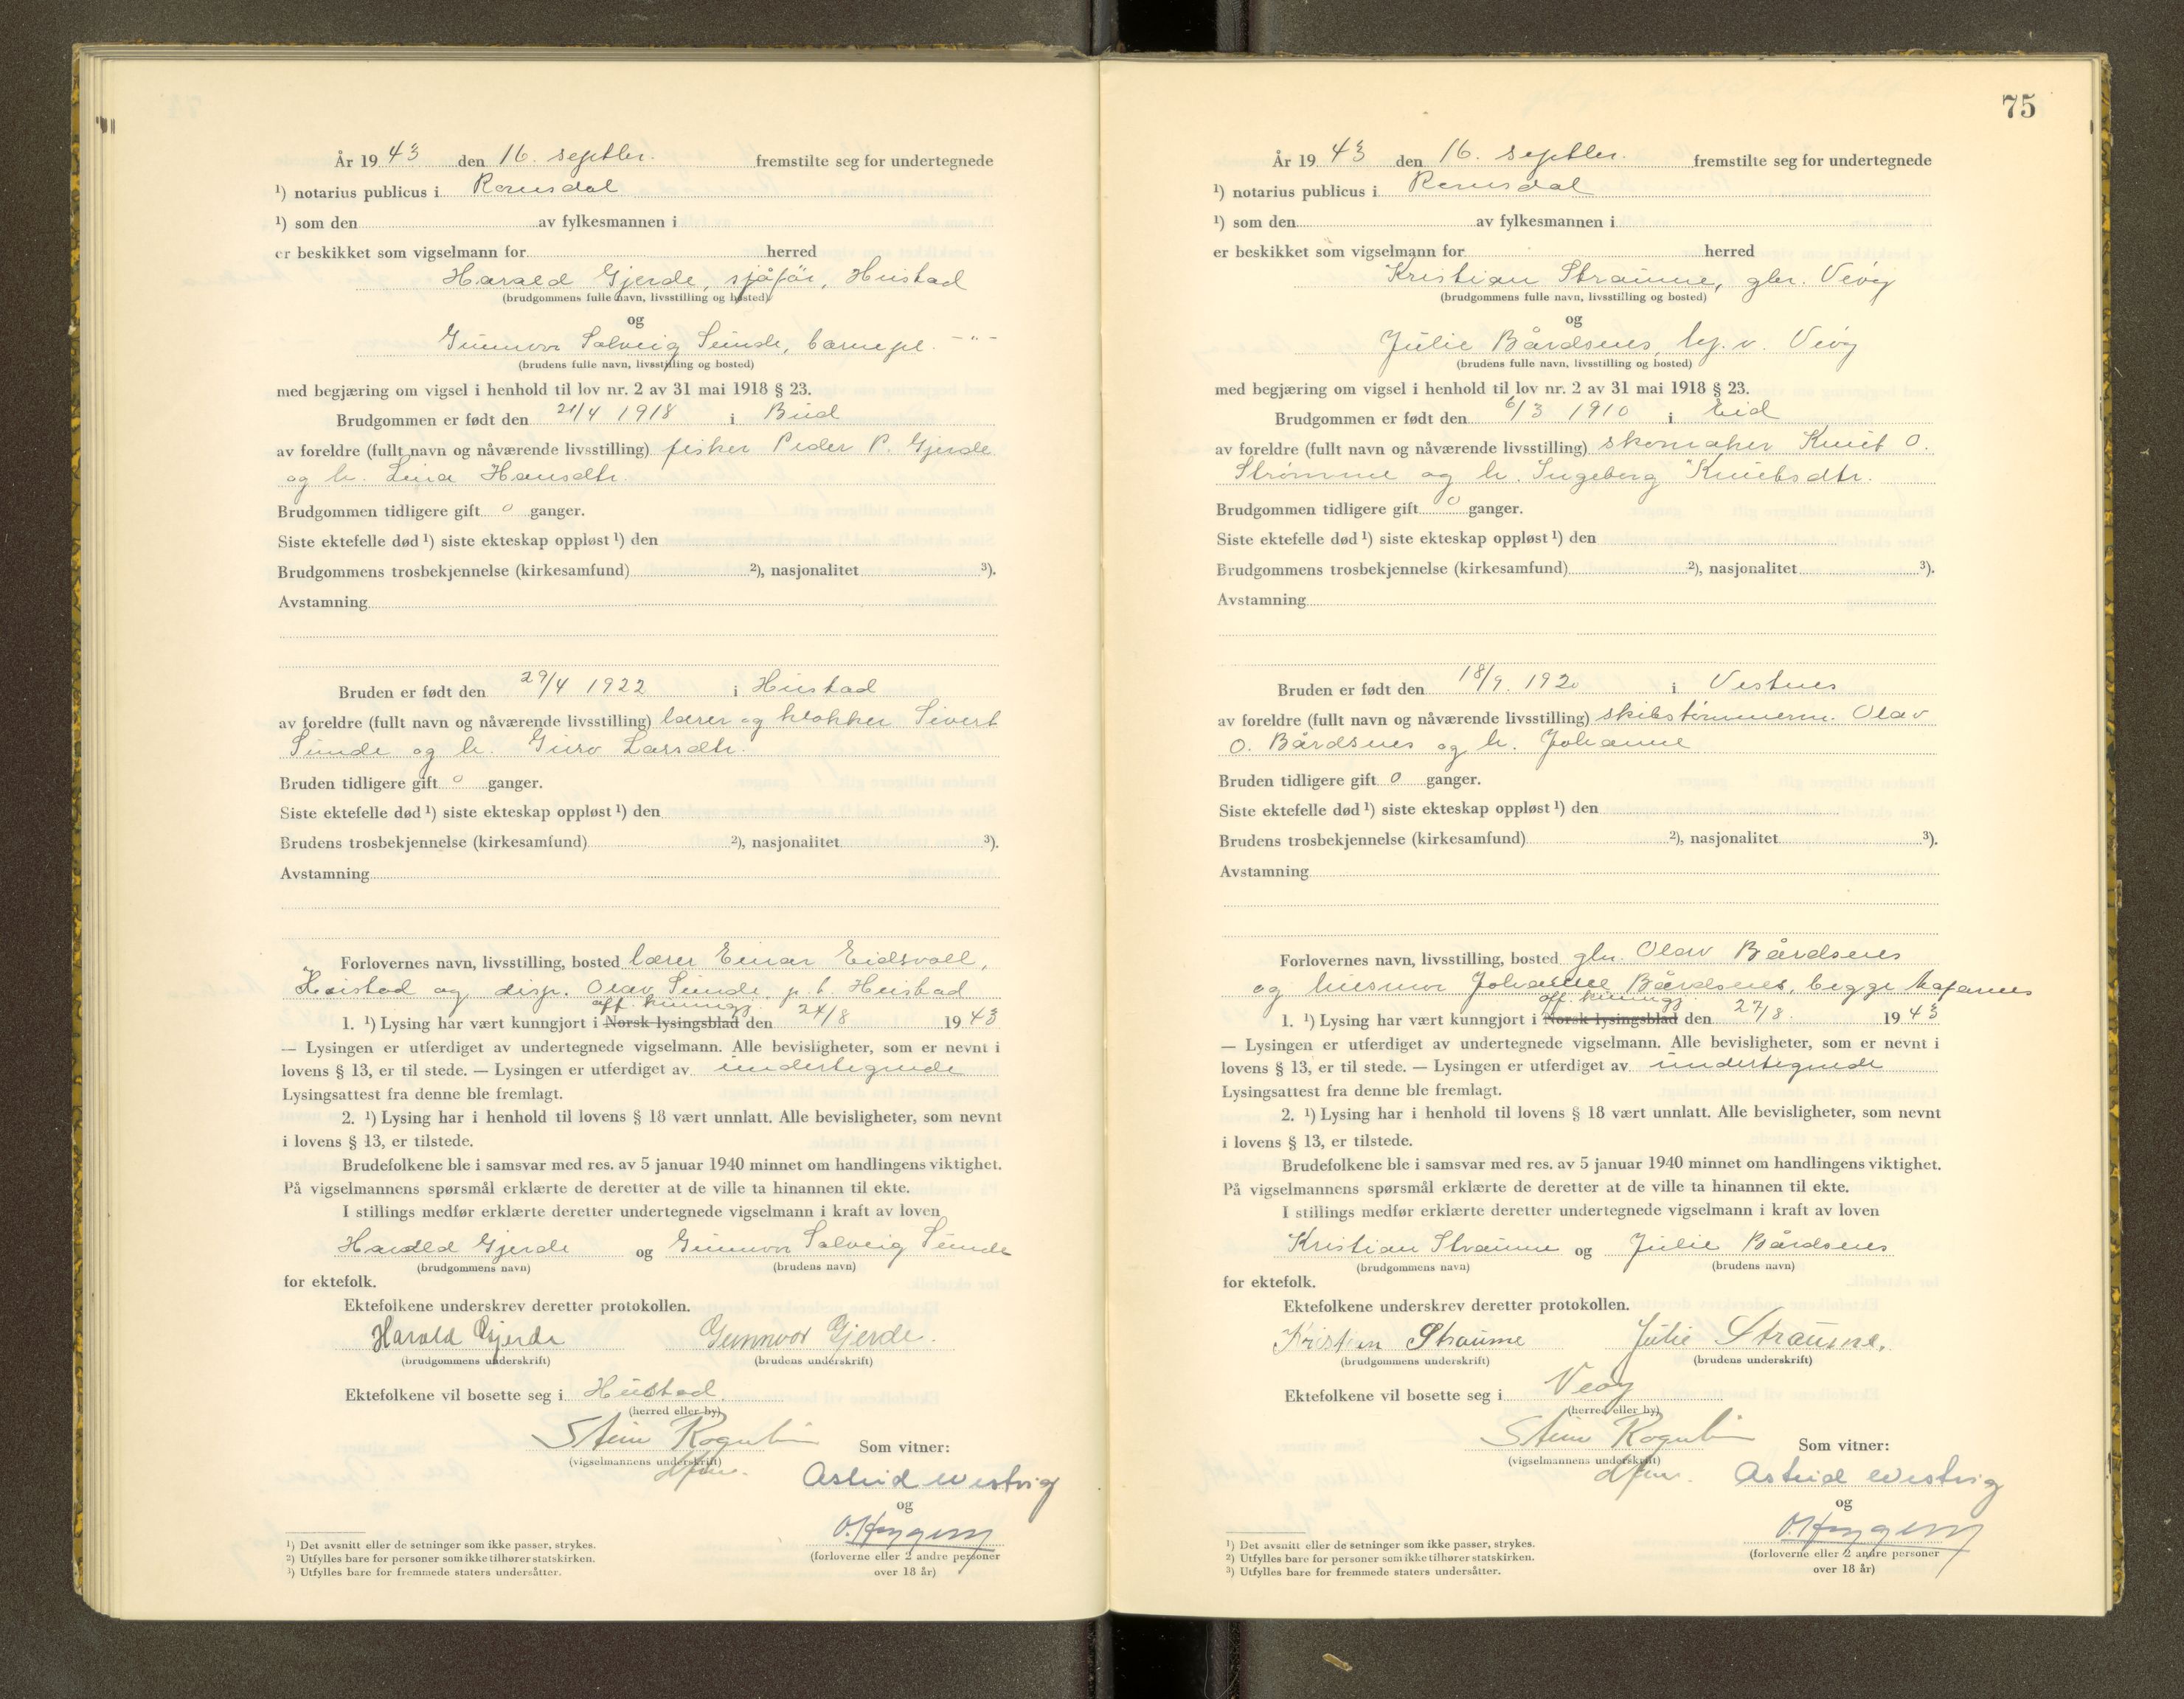 År 19 43 den 16. septbr. fremstilte seg for undertegnede
¹) notarius publicus i Romsdal
¹) som den av fylkesmannen i
er beskikket som vigselmann for herred
Harald Gjerde, sjåfør, Hustad
(brudgommens fulle navn, livsstilling og bosted)
og
Gunnvor Solveig Sunde, barnepl. -"-
(brudens fulle navn, livsstilling og bosted)
med begjæring om vigsel i henhold til lov nr. 2 av 31 mai 1918 § 23.
Brudgommen er født den 21/4 1918 i Bud
av foreldre (fullt navn og nåværende livsstilling) fisker Peder P. Gjerde
og h. Lina Hansdtr.
Brudgommen tidligere gift 0 ganger.
Siste ektefelle død ¹) siste ekteskap oppløst ¹) den
Brudgommens trosbekjennelse (kirkesamfund) ²), nasjonalitet ³).
Avstamning
Bruden er født den 29/4 1922 i Hustad
av foreldre (fullt navn og nåværende livsstilling) lærer og klokker Sivert
Sunde og h. Guro Larsdtr.
Bruden tidligere gift 0 ganger.
Siste ektefelle død ¹) siste ekteskap oppløst ¹) den
Brudens trosbekjennelse (kirkesamfund) ²), nasjonalitet ³).
Avstamning
Forlovernes navn, livsstilling, bosted lærer Einar Eidsvoll,
Hustad og disp. Olav Sunde, p.t. Hustad
off. kunngj.
1. ¹) Lysing har vært kunngjort i Norsk lysingsblad den 24/8 19 43
— Lysingen er utferdiget av undertegnede vigselmann. Alle bevisligheter, som er nevnt i
lovens § 13, er til stede. — Lysingen er utferdiget av undertegnede
Lysingsattest fra denne ble fremlagt.
2. ¹) Lysing har i henhold til lovens § 18 vært unnlatt. Alle bevisligheter, som nevnt
i lovens § 13, er tilstede.
Brudefolkene ble i samsvar med res. av 5 januar 1940 minnet om handlingens viktighet.
På vigselmannens spørsmål erklærte de deretter at de ville ta hinannen til ekte.
I stillings medfør erklærte deretter undertegnede vigselmann i kraft av loven
Harald Gjerde og Gunnvor Solveig Sunde
(brudgommens navn) (brudens navn)
for ektefolk.
Ektefolkene underskrev deretter protokollen.
Harald Gjerde Gunnvor Gjerde.
(brudgommens underskrift) (brudens underskrift)
Ektefolkene vil bosette seg i Hustad.
(herred eller by)
Stein Rognlien
(vigselmannens underskrift) Som vitner:
dfm.
Astrid Westvig
og
(forloverne eller 2 andre personer
over 18 år)
¹) Det avsnitt eller de setninger som ikke passer, strykes.
²) Utfylles bare for personer som ikke tilhører statskirken.
³) Utfylles bare for fremmede staters undersåtter.
75
År 19 43 den 16. septbr. fremstilte seg for undertegnede
¹) notarius publicus i Romsdal
¹) som den av fylkesmannen i
er beskikket som vigselmann for herred
Kristian Straume, gbr. Veøy
(brudgommens fulle navn, livsstilling og bosted)
og
Julie Bårdsnes, hj. v. Veøy
(brudens fulle navn, livsstilling og bosted)
med begjæring om vigsel i henhold til lov nr. 2 av 31 mai 1918 § 23.
Brudgommen er født den 6/3 1910 i Eid
av foreldre (fullt navn og nåværende livsstilling) skomaker Knut O.
Strømme og h. Ingeborg Knutsdtr.
Brudgommen tidligere gift 0 ganger.
Siste ektefelle død ¹) siste ekteskap oppløst ¹) den
Brudgommens trosbekjennelse (kirkesamfund) ²), nasjonalitet ³).
Avstamning
Bruden er født den 18/9. 1920 i Vestnes
av foreldre (fullt navn og nåværende livsstilling) skibstømmerm. Olav
O. Bårdsnes og h. Johanne
Bruden tidligere gift 0 ganger.
Siste ektefelle død ¹) siste ekteskap oppløst ¹) den
Brudens trosbekjennelse (kirkesamfund) ²), nasjonalitet ³).
Avstamning
Forlovernes navn, livsstilling, bosted gbr. Olav Bårdsnes
og husmor Johanne Bårdsnes, begge
off. kunngj.
1. ¹) Lysing har vært kunngjort i Norsk lysingsblad den 27/8. 19 43
— Lysingen er utferdiget av undertegnede vigselmann. Alle bevisligheter, som er nevnt i
lovens § 13, er til stede. — Lysingen er utferdiget av undertegnede
Lysingsattest fra denne ble fremlagt.
2. ¹) Lysing har i henhold til lovens § 18 vært unnlatt. Alle bevisligheter, som nevnt
i lovens § 13, er tilstede.
Brudefolkene ble i samsvar med res. av 5 januar 1940 minnet om handlingens viktighet.
På vigselmannens spørsmål erklærte de deretter at de ville ta hinannen til ekte.
I stillings medfør erklærte deretter undertegnede vigselmann i kraft av loven
Kristian Straume og Julie Bårdsnes
(brudgommens navn) (brudens navn)
for ektefolk.
Ektefolkene underskrev deretter protokollen.
Kristian Straume Julie Straume.
(brudgommens underskrift) (brudens underskrift)
Ektefolkene vil bosette seg i Veøy
(herred eller by)
Stein Rognlien
(vigselmannens underskrift) Som vitner:
dfm.
Astrid Westvig
og
(forloverne eller 2 andre personer
over 18 år)
¹) Det avsnitt eller de setninger som ikke passer, strykes.
²) Utfylles bare for personer som ikke tilhører statskirken.
³) Utfylles bare for fremmede staters undersåtter.